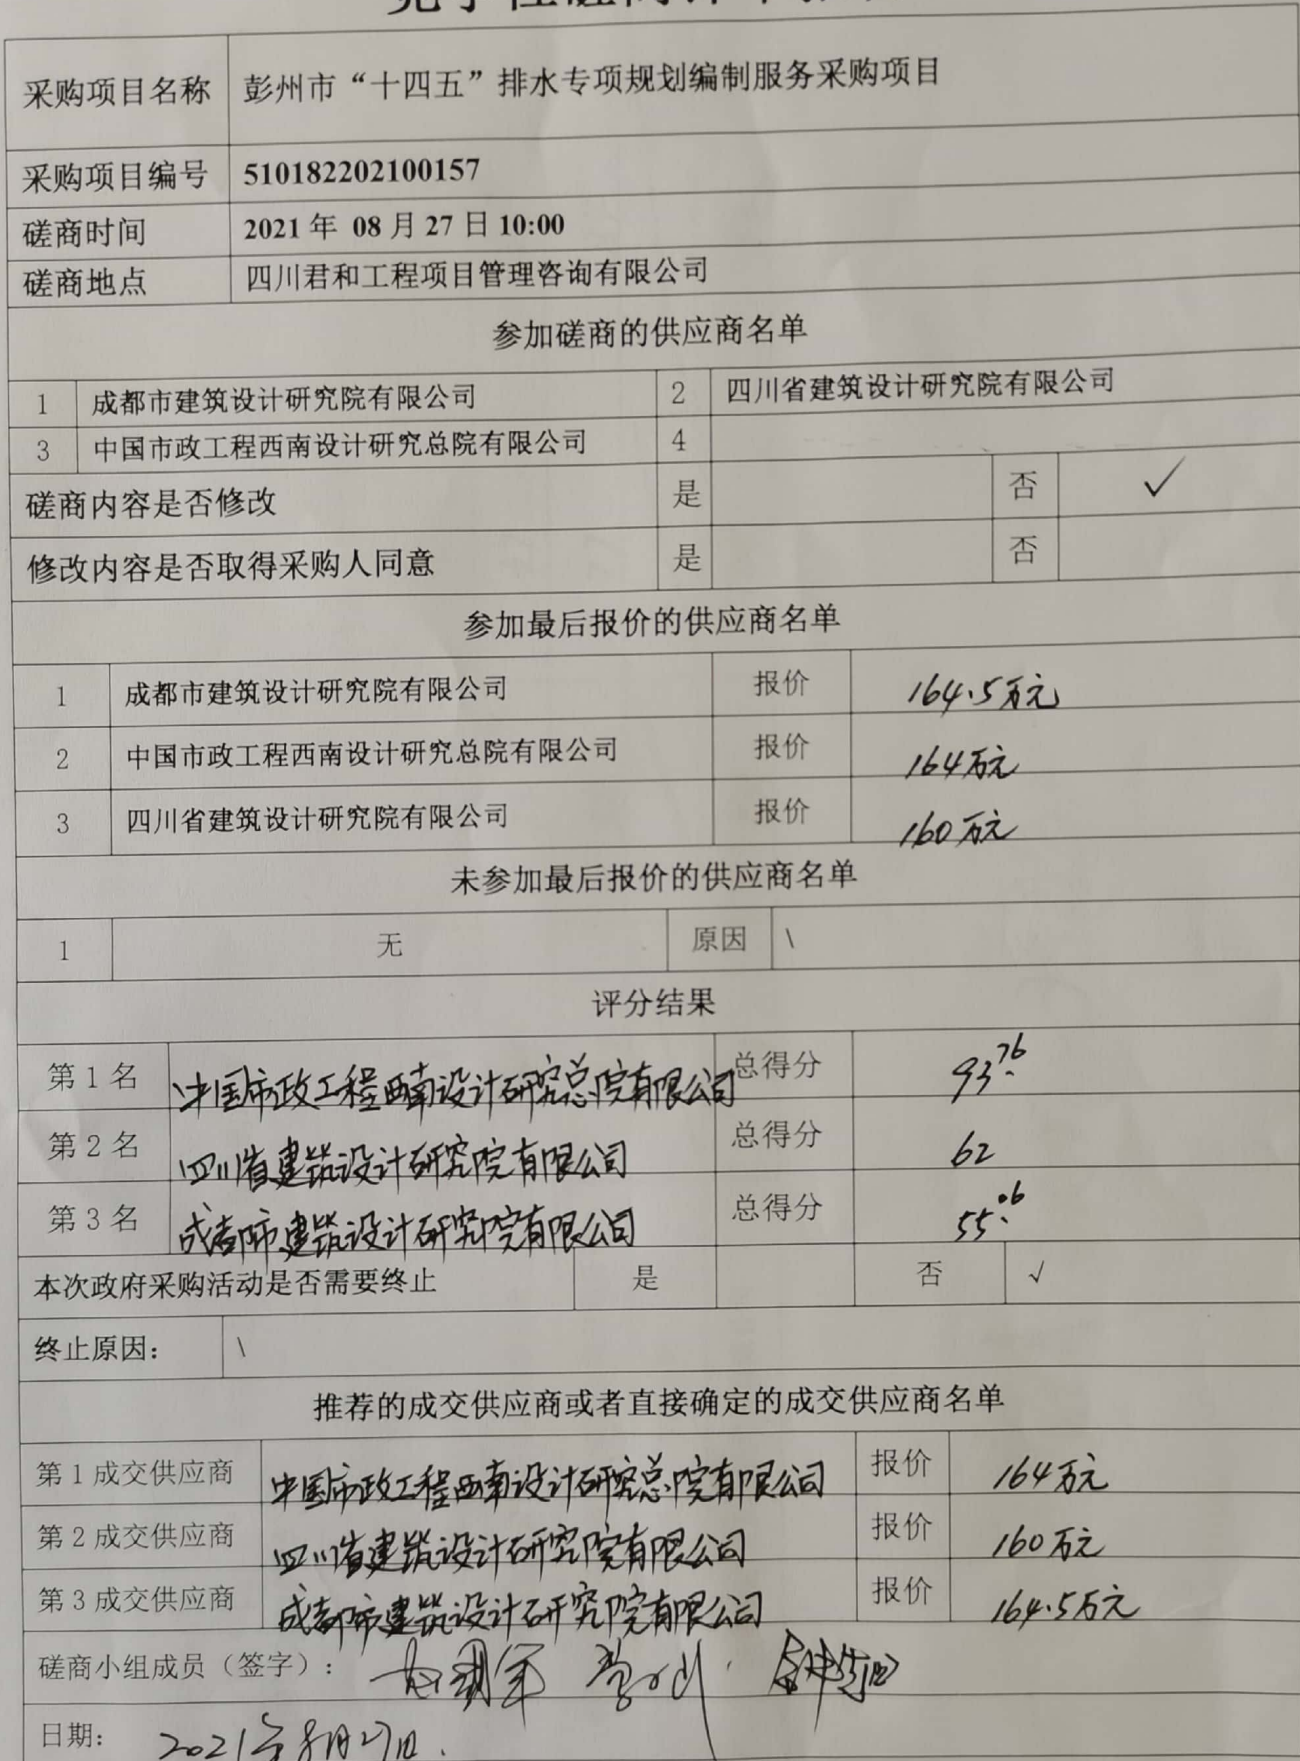 采购项目名称 彭州市“十四五”排水专项规划编制服务采购项目
采购项目编号 510182202100157
磋商时间 2021年 08月27日10:00
磋商地点 四川君和工程项目管理咨询有限公司
参加磋商的供应商名单
1 成都市建筑设计研究院有限公司 2 四川省建筑设计研究院有限公司
3 中国市政工程西南设计研究总院有限公司 4
磋商内容是否修改 是 否 √
修改内容是否取得采购人同意 是 否
参加最后报价的供应商名单
1 成都市建筑设计研究院有限公司 报价 164.5万元
2 中国市政工程西南设计研究总院有限公司 报价 164万元
3 四川省建筑设计研究院有限公司 报价 160万元
未参加最后报价的供应商名单
1 无 原因 \
评分结果
第1名 中国市政工程西南设计研究总院有限公司 总得分 93.76
第2名 四川省建筑设计研究院有限公司 总得分 62
第3名 成都市建筑设计研究院有限公司 总得分 55.06
本次政府采购活动是否需要终止 是 否 √
终止原因： \
推荐的成交供应商或者直接确定的成交供应商名单
第1成交供应商 中国市政工程西南设计研究总院有限公司 报价 164万元
第2成交供应商 四川省建筑设计研究院有限公司 报价 160万元
第3成交供应商 成都市建筑设计研究院有限公司 报价 164.5万元
磋商小组成员（签字）：
日期： 2021年8月27日.